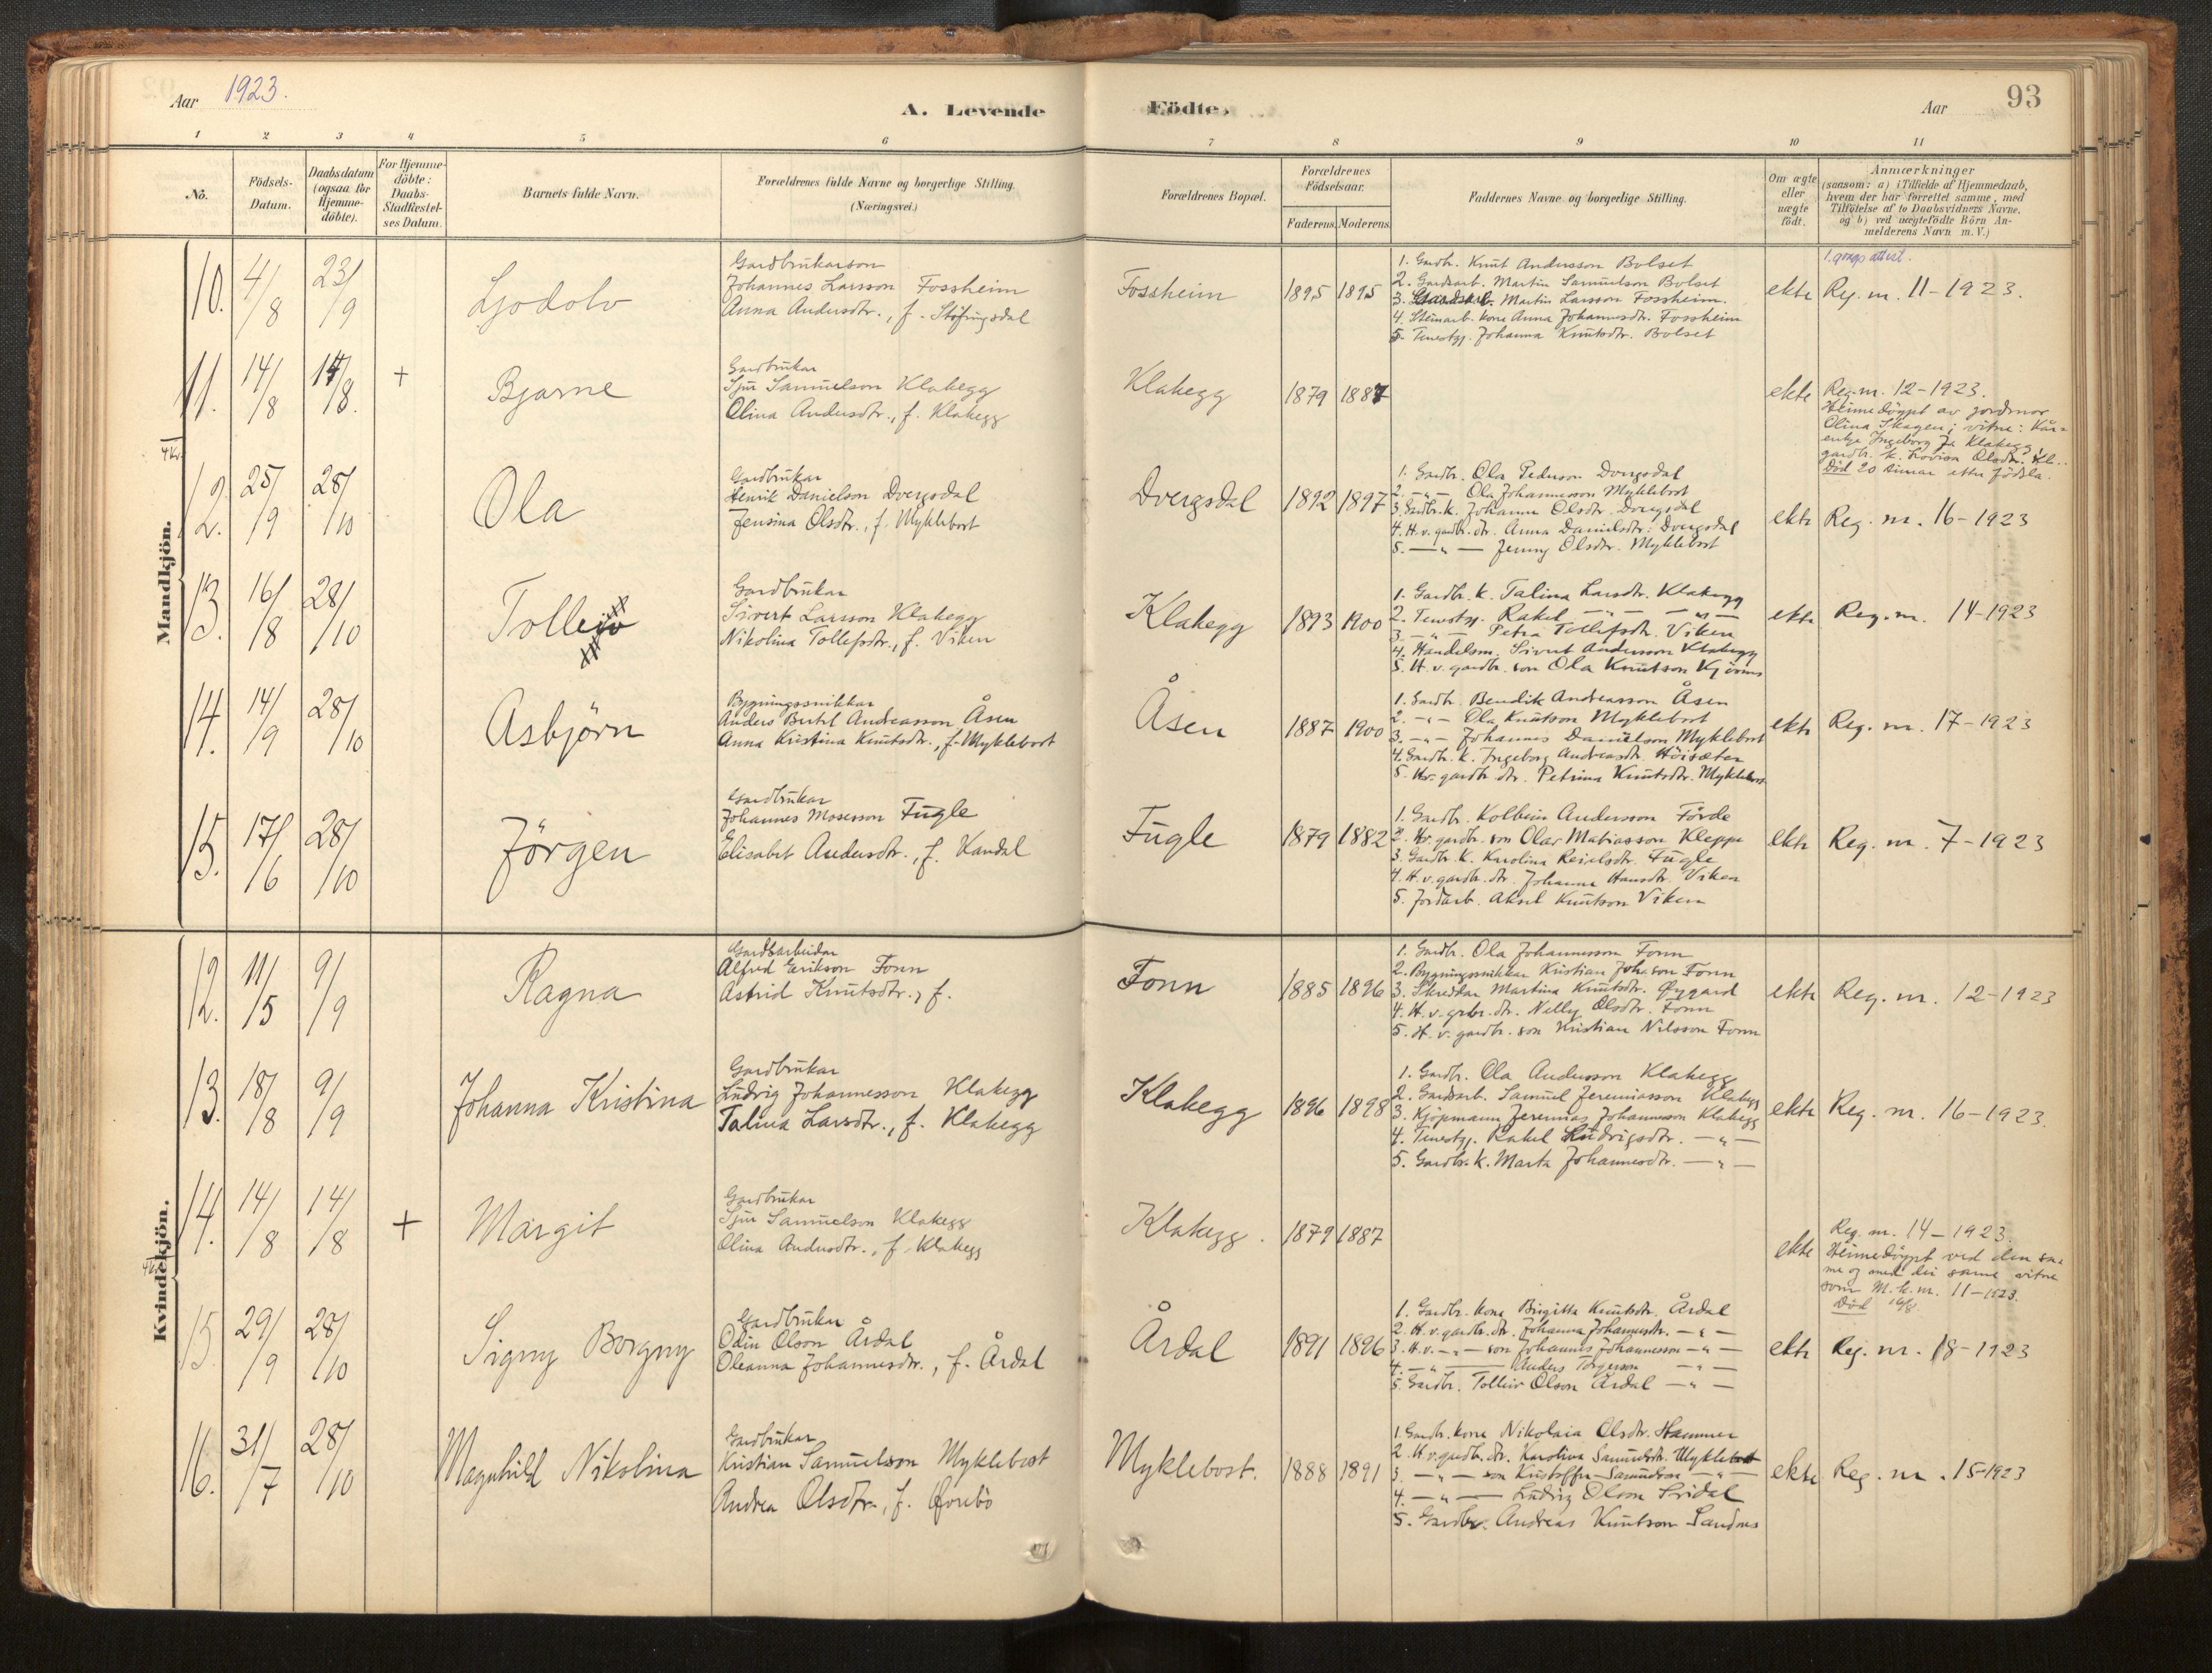 Aar 1923.
A. Levende Födte.
Aar
93
1 2 3 4 5 6 7 8 9 10 11
No.
Födsels-Datum.
Daabsdatum (ogsaa for Hjemme-döbte).
For Hjemme-döbte: Daabs-Stadfæstel-ses Datum.
Barnets fulde Navn.
Forældrenes fulde Navne og borgerlige Stilling. (Næringsvei.)
Forældrenes Bopæl.
Forældrenes Födselsaar.
Faderens. Moderens.
Faddernes Navne og borgerlige Stilling.
Om ægte eller uægte födt.
Anmærkninger
(saasom: a) i Tilfælde af Hjemmedaab,
hvem der har forrettet samme, med
Tilföielse af to Daabsvidners Navne,
og b) ved uægtefödte Börn An-
melderens Navn m.V.)
Mandkjön.
10. 4/8 23/9
Ljodolv
Gardbrukarson
Johannes Larsson Fossheim
Anna Andersdtr., f. Støfringsdal
Fossheim
1895 1895
1. Gardbr. Knut Andersson Bolset
2. Gardsarb. Martin Samuelson Bolset
3. Gardsarb. Martin Larsson Fossheim.
4. Steinarb. kone Anna Johannesdtr. Fossheim
5. Tenestgj. Johanna Knutsdtr. Bolset
ekte
1. gongs attest.
Reg. nr. 11-1923.
11. 14/8 14/8. +
Bjarne
Gardbrukar
Sjur Samuelson Klakegg
Olina Andersdtr., f. Klakegg
Klakegg
1879 1887
ekte
Reg. nr. 12-1923.
Heimedöypt av jordmor
Olina Skagen; vitne: Kår-
enkje Ingeborg J. Klakegg,
gardbr. k. Lovisa Olsdtr. Kl..
Död 20 timar etter födsla.
4 kv.
12. 25/9 28/10
Ola
Gardbrukar
Henrik Danielson Dvergsdal
Jensina Olsdtr., f. Myklebost
Dvergsdal
1892 1897
1. Gardbr. Ola Pederson Dvergsdal
2. -"- Ola Johannesson Myklebost
3. Gardbr. k. Johanne Olsdtr. Dvergsdal
4. H. v. gardbr. dtr. Anna Danielsdtr. Dvergsdal
5. -"- Jenny Olsdtr. Myklebost
ekte
Reg. nr. 16-1923
13. 16/8 28/10
Tolleiv
Gardbrukar
Sivert Larsson Klakegg
Nikolina Tollefsdtr., f. Viken
Klakegg
1893 1900
1. Gardbr. k. Talina Larsdtr. Klakegg
2. Tenestgj. Rakel -"- -"-
3. -"- Petra Tollefsdtr. Viken
4. Handelsm. Sivert Andersson Klakegg
5. H. v. gardbr. son Ola Knutson Kjösnes
ekte
Reg. nr. 14-1923
14. 14/9 28/10
Asbjörn
Bygningssnikkar
Anders Bertel Andreasson Åsen
Anna Kristina Knutsdtr., f. Myklebost
Åsen
1887 1900
1. Gardbr. Bendik Andreasson Åsen
2. -"- Ola Knutson Myklebost
3. -"- Johannes Danielson Myklebost
4. Gardbr. k. Ingeborg Andreasdtr. Höisæter
5. Hv. gardbr. dtr. Petrina Knutsdtr. Myklebost
ekte
Reg. nr. 17-1923
15. 17/6 28/10
Jörgen
Gardbrukar
Johannes Mosesson Fugle
Elisabet Andersdtr., f. Kandal
Fugle
1879 1882
1. Gardbr. Kolbein Andersson Förde
2. Hv. gardbr. son Olav Matiasson Kleppe
3. Gardbr. K. Karolina Reielsdtr. Fugle
4. H. v. gardbr. dtr. Johanna Hansdtr. Viken
5. Jordarb. Aksel Knutson Viken
ekte
Reg. nr. 7-1923
Kvindekjön.
12. 11/5 9/9
Ragna
Gardsarbeidar
Alfred Eirikson Fonn
Astrid Knutsdtr., f.
Fonn
1885 1896
1. Gardbr. Ola Johannesson Fonn
2. Bygningssnikkar Kristian Joh.son Fonn
3. Skreddar Martina Knutsdtr. Øygard
4. H. v. grbr. dtr. Nelly Olsdtr. Fonn
5. H. v. gardbr. son Kristian Nilsson Fonn
ekte
Reg. nr. 12-1923
13. 18/8 9/9
Johanna Kristina
Gardbrukar
Ludvig Johannesson Klakegg
Talina Larsdtr., f. Klakegg
Klakegg
1896 1898
1. Gardbr. Ola Andersson Klakegg
2. Gardsarb. Samuel Jeremiasson Klakegg
3. Kjöpmann Jeremias Johannesson Klakegg
4. Tenestgj. Rakel Ludvigsdtr. -"-
5. Gardbr. k. Marta Johannesdtr. -"-
ekte
Reg. nr. 16-1923.
14. 14/8 14/8 +
Margit
Gardbrukar
Sjur Samuelson Klakegg
Olina Andersdtr., f. Klakegg
Klakegg.
1879 1887
ekte
Reg. nr. 14-1923.
Heimedöypt ved den sa-
me og med dei same vitne
som M. k. nr. 11-1923.
Död 16/8.
4 kv.
15. 29/9 28/10
Signy Borgny
Gardbrukar
Odin Olson Årdal
Oleanna Johannesdtr., f. Årdal
Årdal
1891 1896
1. Gardbr. kona Birgitta Knutsdtr. Årdal
2. H. v. gardbr. dtr. Johanna Johannesdtr. -"-
3. H. v. -"- son Johannes Johannesson -"-
4. -"- Anders Torgerson -"-
5. Gardbr. Tolleiv Olson Årdal -"-
ekte
Reg. nr. 18-1923
16. 31/7 28/10
Magnhild Nikolina
Gardbrukar
Kristian Samuelson Myklebost
Andrea Olsdtr., f. Øvrebö
Myklebost.
1888 1891
1. Gardbr. kona Nikolaia Olsdtr. Hammer
2. H. v. gardbr. dtr. Karolina Samuelsdtr. Myklebost
3. -"- son Kristoffer Samuelson -"-
4. -"- Ludvig Olson Sridal
5. Gardbr. Andreas Knutson Sandnes
ekte
Reg. nr. 15-1923